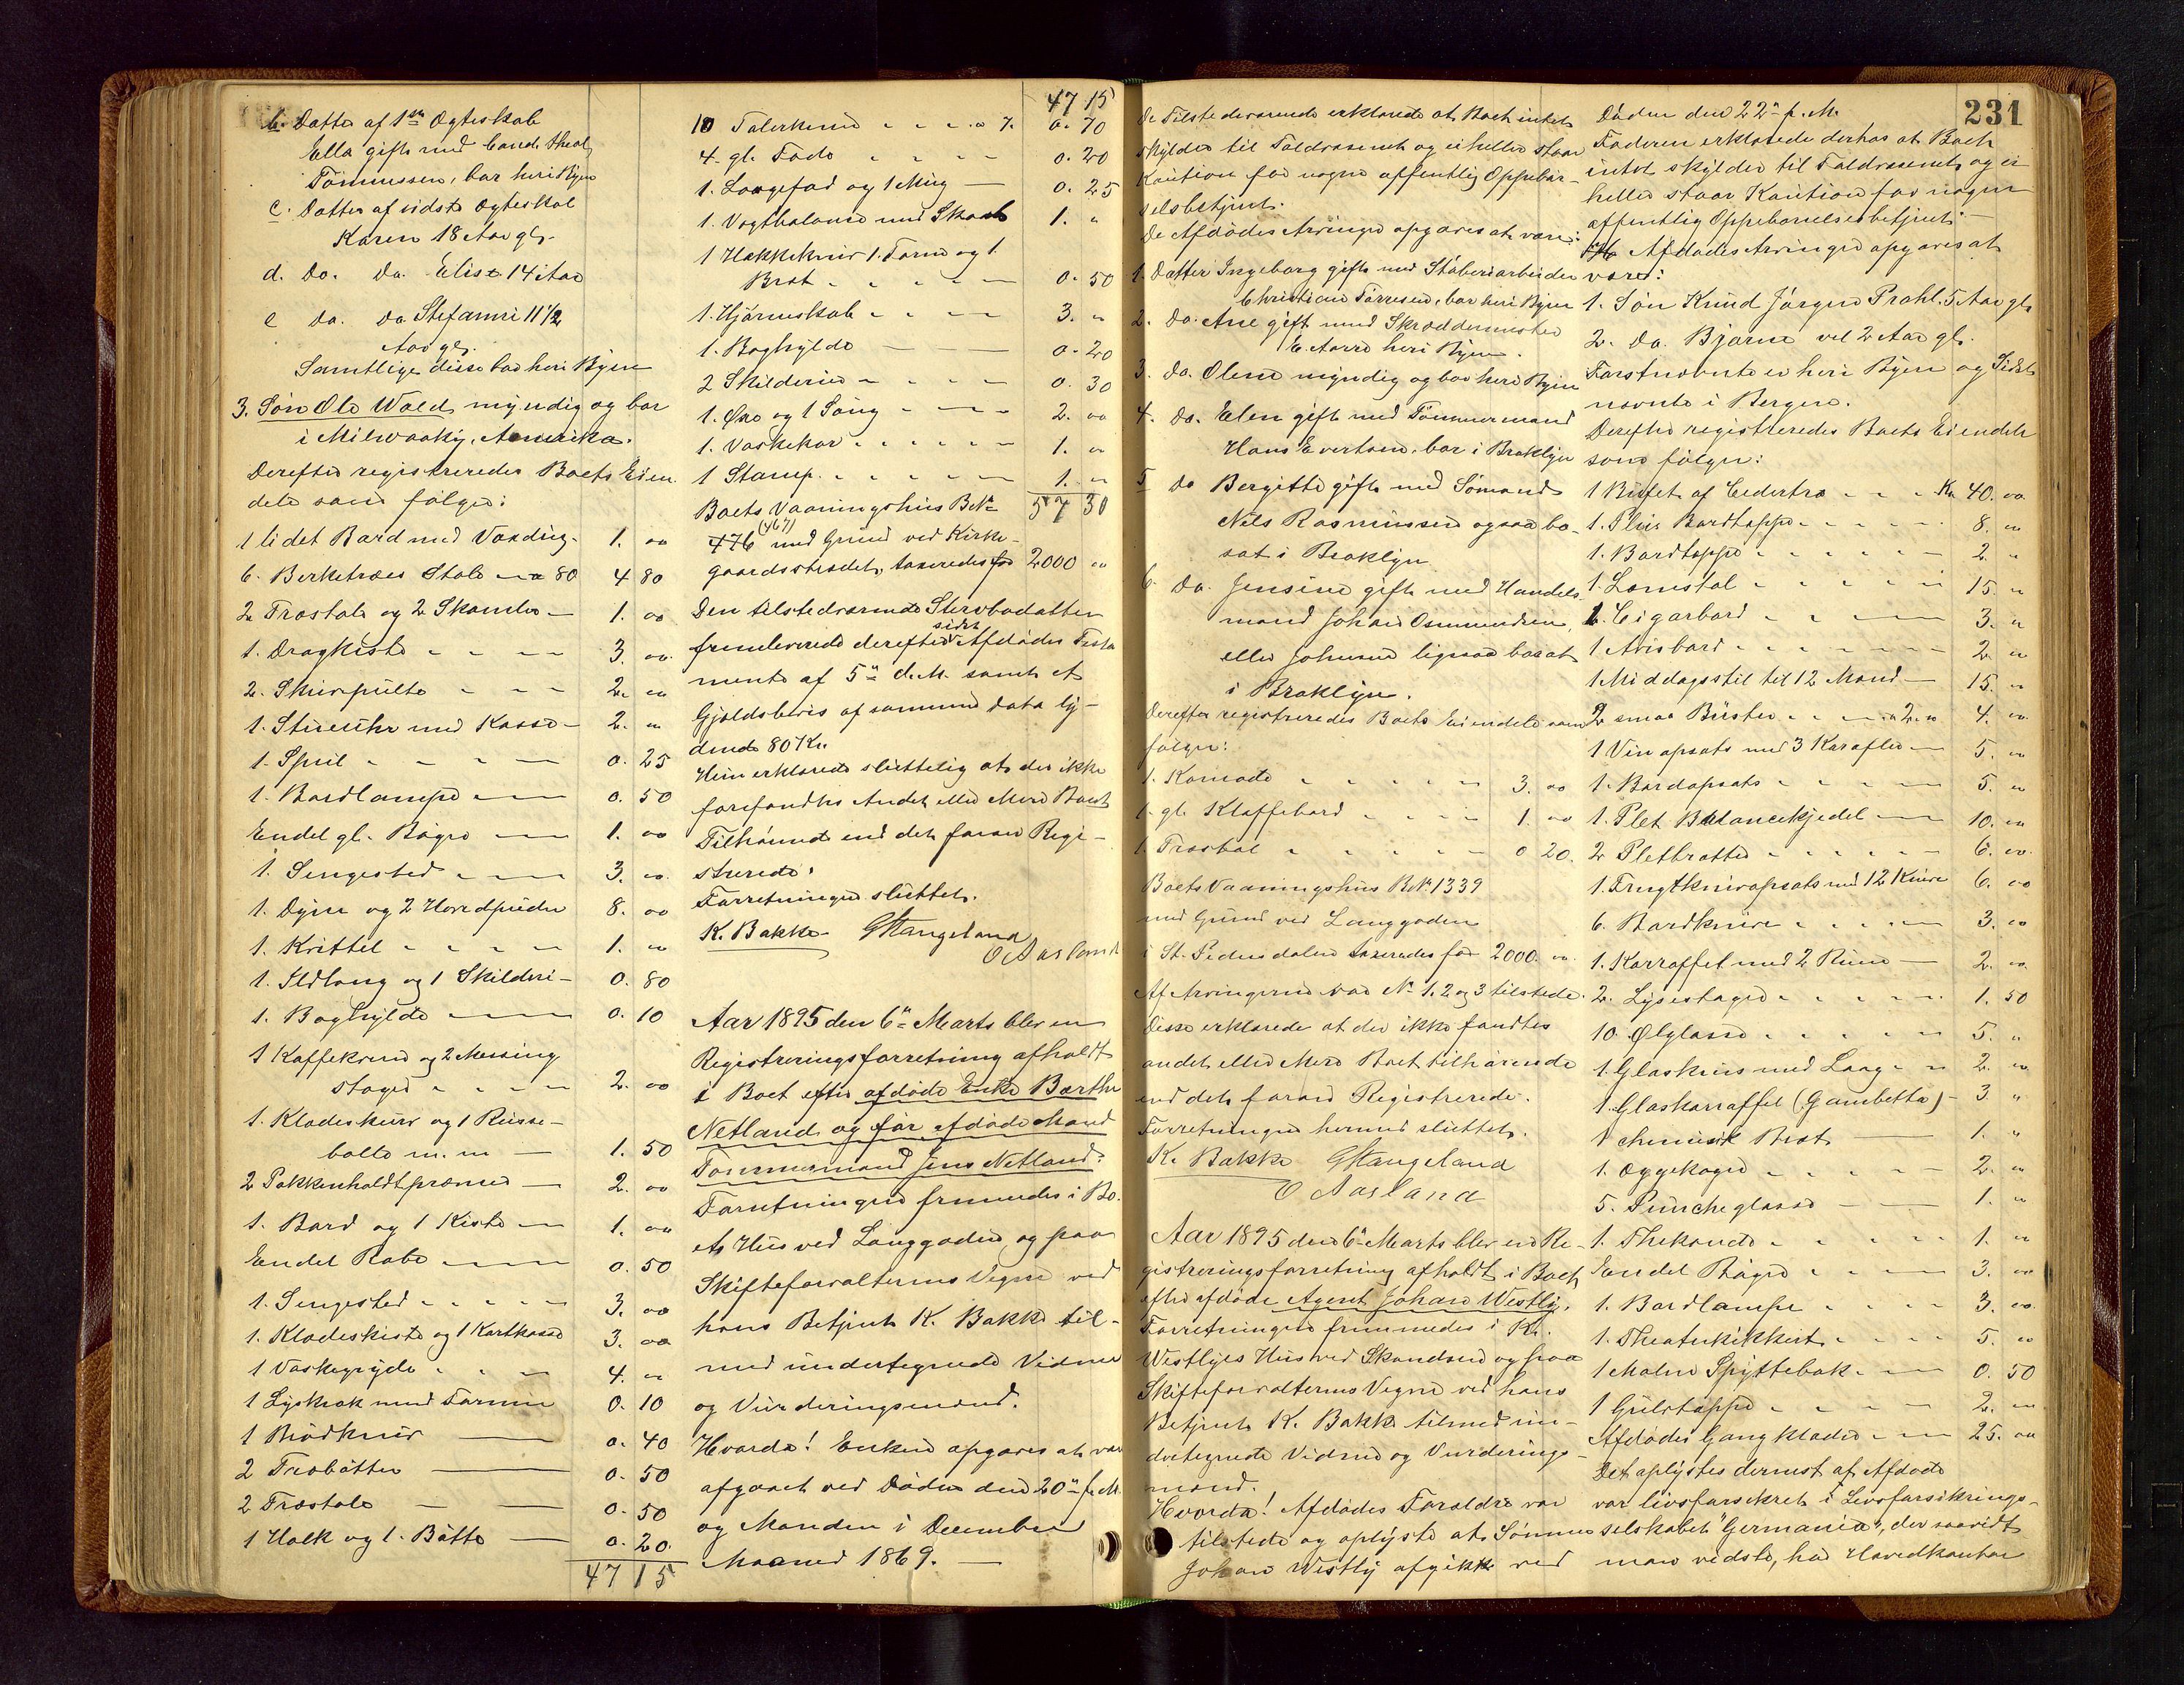 b. Datter af 1ste Ægteskab
Ella gift med Cand. theol.
Tønnessen, bor her i Byen
c. Datter af sidste Ægteskab
Karen 18 Aar gl.
d. Do. Do. Elise 14 i Aar
e do. do Stefanie 11 1/2
Aar gl.
Samtlige disse bor her i Byen
3. Søn Ole Wold, myndig og bor
i Milwaaky, Amerika.
Derefter registreredes Boets Eien
dele som følger:
1 lidet Bord med Voxdug - 1. 00
6. Berketræes Stole - a 80 4 80
2 Træstole og 2 Skamler - 1. 00
1. Dragkiste - - - 3. 00
2. Skrivepulte - - - 2. 00
1. Stueuhr med Kasse - 2. "
1. Speil - - - 0. 25
1. Bordlampe - - 0. 50
Endel gl. Bøger - - 1. 00
1. Sengested - - 3. 00
1. Dyne og 2 Hovedpuder 8. 00
1. Krittel - - - 1. 00
1. Ildtang og 1 Skilderi - 0. 80
1. Boghylde - - 0. 10
1 Kaffekvern og 2 Messing
stager - - - 2. 00
1. Klædeskurv og 1 Russe-
balle m. m - 1. 50
2 Pakkenholdtpræmer - 2. 00
1. Bord og 1 Kiste - 1. 00
Endel Rabe - - 0. 50
1. Sengested - - - 3. 00
1. Klædeskiste og 1 Kortkasse 3. 00
1 Vaskegryde - - - 4. "
1 Lyskrok med Forme 0. 10
1 Brødkniv - 0. 40
2 Træbøtter - 0. 50
2 Træstole - - 0. 50
1 Holk og 1. Bøtte - 0. 20.
47 15
47 15
10 Talerkener - - - a 7. 0. 70
4. gl. Fade - - - 0. 20
1. Laagefad og 1 Mug - 0. 25
1. Vægtbalance med Skaal 1. "
1 Hakkekniv 1. Form og 1.
Bræt - - - - 0. 50
1. Hjørneskab - - - 3. "
1. Boghylde - - 0. 20
2 Skilderier - - - 0. 30
1. Øxe og 1 Saug - - - 2. 00
1. Vaskekar - - - 1. "
1 Stamp. - - - 1. "
57 30
Boets Vaaningshus B.No
476 (467) med Grund ved Kirke-
gaardsstrædet, taxeredes for 2000 "
Den tilstedeværende Stervbodatter
fremleverede derefter sidst Afdødes Testa
mente af 5te d.M. samt et
Gjældsbevis af samme Data ly-
dende 80 Kr.
Hun erklærede sluttelig at der ikke
forefandtes Andet eller Mere Boet
Tilhørende end det foran Regi-
strerede.
Forretningen sluttet.
K. Bakke GStangeland
O Aasland
Aar 1895 den 6te Marts blev en
Registreringsforretning afholdt
i Boet efter afdøde Enke Barthe
Netland og før afdøde Mand
Tømmermand Jens Netland.
Forretningen fremmedes i Bo-
ets Hus ved Langgaden og paa
Skifteforvalterens Vegne ved
hans Betjent K. Bakke til-
med undertegnede Vidner
og Vurderingsmænd.
Hvorda! Enken opgaves at være
afgaaet ved Døden den 20de f.M.
og Manden i December
Maaned 1869. -
231
De Tilstedeværende erklærede at Boet intet
skylder til Toldvæsenet og ei heller staar
Kaution for nogen offentlig Oppebør-
selsbetjent.
De Afdødes Arvinger opgaves at være:
1. Datter Ingeborg gift med Støberiarbeider
Christian Tørresen, bor her i Byen
2. do. Ane gift med Skræddermester
E. Aarre her i Byen.
3. do. Olene myndig og bor her i Byen
4. do. Elen gift med Tømmermand
Hans Evertsen, bor i Broklyn
5 do Bergitte gift med Sømand
Nils Rasmussen ogsaa bo-
sat i Broklyn
6. do. Jensine gift med Handels-
mand Johan Osmundsen,
eller Johnsen ligesaa bosat
i Broklyn.
Derefter registreredes Boets Eiendele som
følger:
1. Komode - - - 3. 00
1. gl. Klaffebord - - - 1. 00
1. Træstol - - - 0 20.
Boets Vaaningshus B.No 1339
med Grund ved Langgaden
i St. Pedersdalen taxeredes for 2000. 00.
Af Arvingerne var No 1. 2 og 3 tilstede.
Disse erklærede at der ikke fandtes
andet eller Mere Boet tilhørende
end det foran Registrerede.
Forretningen hermed sluttet.
K. Bakke GStangeland
O Aasland
Aar 1895 den 6te Marts blev en Re-
gistreringsforretning afholdt i Boet
efter afdøde Agent Johan Westly.
Forretningen fremmedes i K.
Westlyes Hus ved Skandsen og paa
Skifteforvalterens Vegne ved hans
Betjent K. Bakke tilmed un-
dertegnede Vidner og Vurderings-
mænd.
Hvorda! Afdødes Forældre var
tilstede og oplyste at Sønnen
Johan Westly afgikk ved
Døden den 22de f. M.
Faderen erklærede derhos at Boet
intet skylder til Toldvæsenet og ei
heller staar Kaution for nogen
offentlig Oppebørselsbetjent. -
Afdødes Arvinger opgaves at
være:
1. Søn Knud Jørgen Prahl. 5 Aar gl.
2. do. Bjarne vel 2 Aar gl.
Førstnævnte er her i Byen og Sidst
nævnte i Bergen.
Derefter registreredes Boets Eiendele
som følger:
1 Buffet af Cedertræ - - - Kr 40. 00.
1. Plus Bordteppe - - - 8. "
1. Bordteppe - - - 2 "
1. Lænestol - - - 15. "
1. Cigarbord - - - 3. "
1 Avisbord - - - 2 "
1 Middagsstil til 12 Mand - 15. "
2 smaa Buster - - - a 2. " 4. 00.
1 Vin opsats med 3 Karafler - 5. 00
1. Bordopsats - - - 5. "
1. Plet Balancekjedel - - 10. 00
2 Pletbratter - - - 6. 00.
1. Frugtknivopsats med 12 Knive 6. 00
6. Bordknive - - - 3. 00
1. Karraffel med 2 Rume - 2. 00.
2. Lysestager - - - 1. 50
10. Ølglasse - - - 5. "
1. Glaskrus med Laag - - 2. 00
1. Glaskarraffel (Gambetta) - 3. "
1 chinesisk Bræt - 1. "
1. Æggekoger - - - 2. "
5. Puncheglasse - - 1. "
1. Thekande - - - 1. "
Endel Bøger - - - 3. 00
1. Bordlampe - - - 3. 00.
1. Theaterkikkert - - - 5. 00
1 Malm Spyttebak. - - 0. 50
1 Gulvteppe - - - 2. "
Afdødes Gangklæder - - 25. 00
Det oplystes dernæst at Afdøde
var livsforsikret i Livsforsikrings-
selskabet "Germania", der saavidt
man vidste, har Hovedkontor